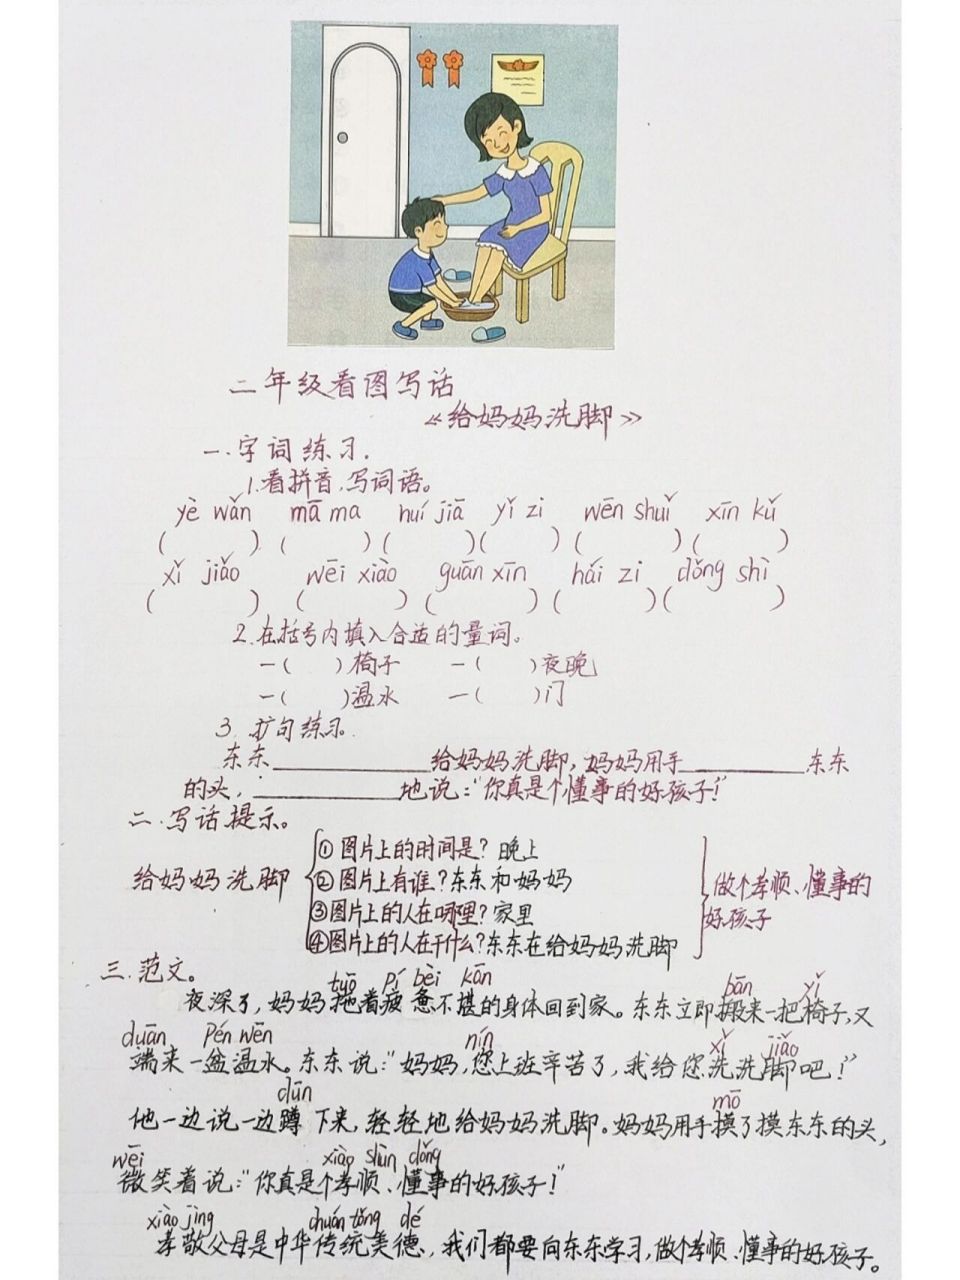 二年级看图写话
《给妈妈洗脚》
一.字词练习.
1.看拼音,写词语。
yè wǎn mā ma huí jiā yǐ zi wēn shuǐ xīn kǔ
( ) ( ) ( ) ( ) ( ) ( )
xǐ jiǎo wēi xiào guān xīn hái zi dǒng shì
( ) ( ) ( ) ( ) ( )
2.在括号内填入合适的量词。
一( )椅子 一( )夜晚
一( )温水 一( )门
3.扩句练习.
东东____给妈妈洗脚,妈妈用手____东东
的头,____地说:“你真是个懂事的好孩子!”
二.写话提示。
给妈妈洗脚
①图片上的时间是?晚上
②图片上有谁?东东和妈妈
③图片上的人在哪里?家里
④图片上的人在干什么?东东在给妈妈洗脚
做个孝顺、懂事的
好孩子
三.范文。
tuō pí bèi kān bān yǐ
夜深了,妈妈拖着疲惫不堪的身体回到家。东东立即搬来一把椅子,又
duān pén wēn nín xǐ jiǎo
端来一盆温水。东东说:“妈妈,您上班辛苦了,我给您洗洗脚吧!”
dūn mō
他一边说一边蹲下来,轻轻地给妈妈洗脚。妈妈用手摸了摸东东的头,
wēi xiào shùn dǒng
微笑着说:“你真是个孝顺、懂事的好孩子!”
xiào jìng chuán tǒng dé
孝敬父母是中华传统美德,我们都要向东东学习,做个孝顺、懂事的好孩子。